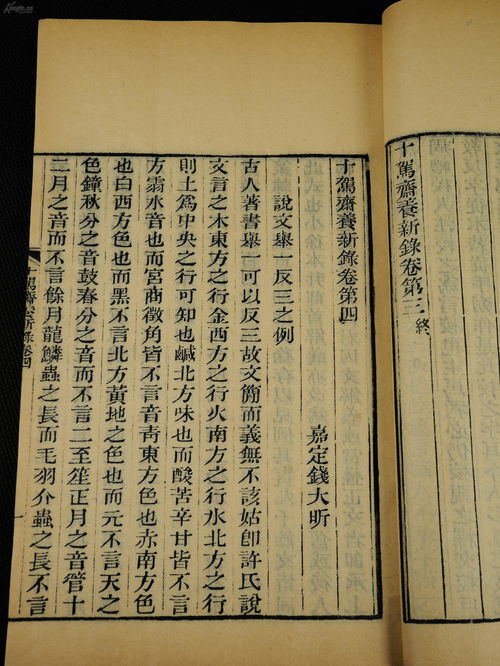 十駕齋養新錄卷第三終
十駕齋養新錄卷第四
嘉定錢大昕
說文舉一反三之例
古人著書舉一可以反三故文簡而義無不該姑卽許氏說
文言之木東方之行金西方之行火南方之行水北方之行
則土爲中央之行可知也鹹北方味也而酸苦辛甘皆不言
方䨣水音也而宮商徵角皆不言音靑東方色也赤南方色
也白西方色也而黑不言北方黃地之色也而元不言天之
色鐘秋分之音鼓春分之音而不言二至笙正月之音管十
二月之音而不言餘月龍鱗蟲之長而毛羽介蟲之長不言
十駕齋養新錄卷四
一